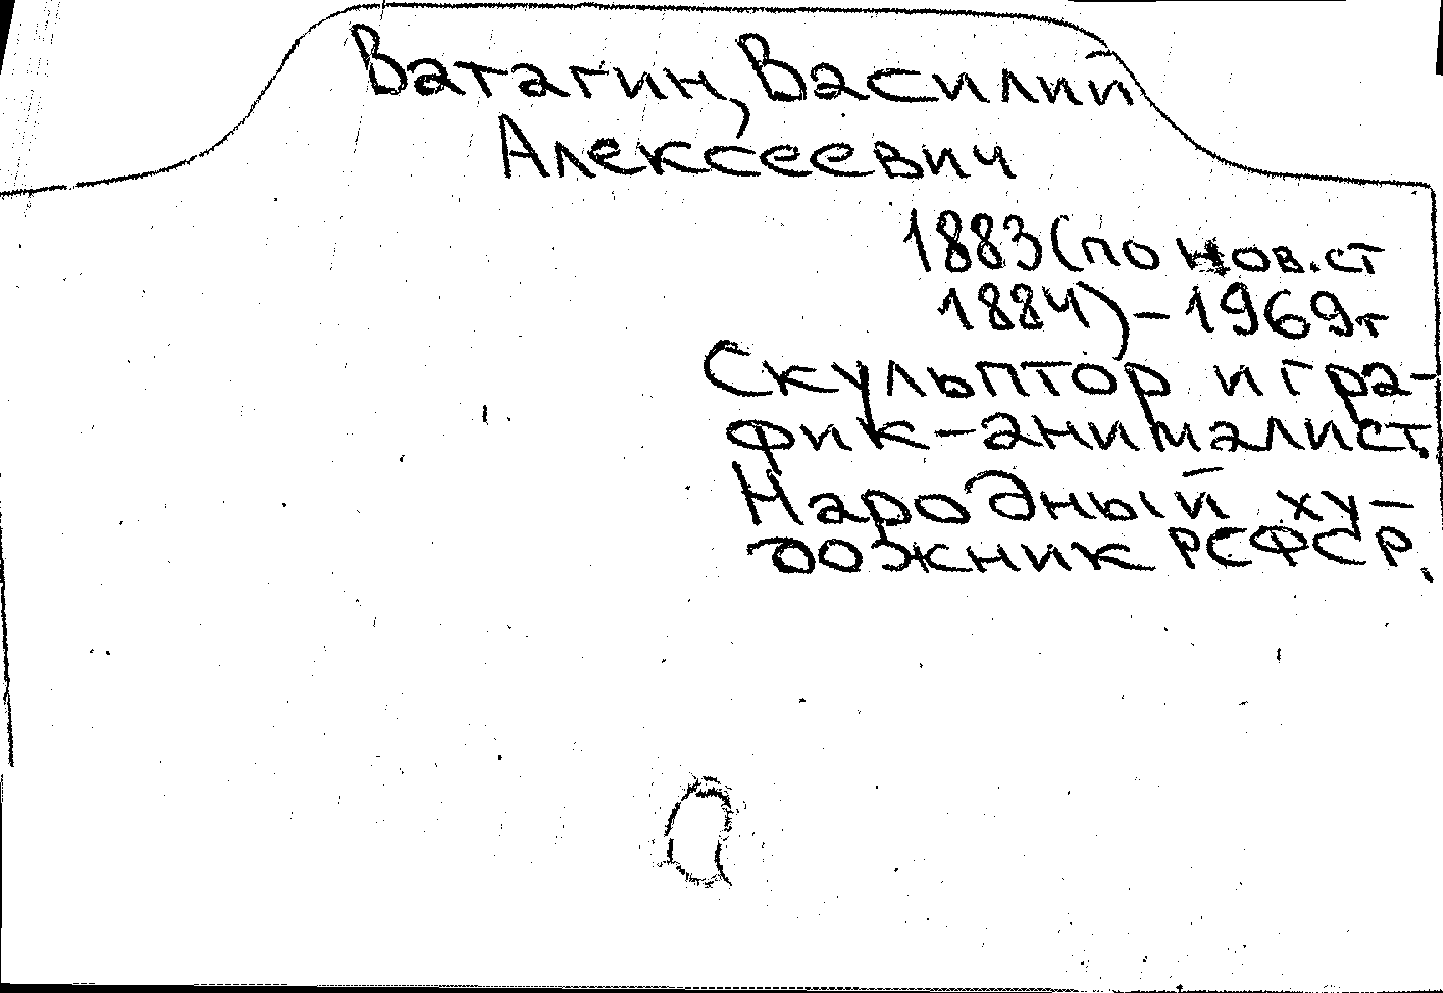 Ватагин, Василий
Алексеевич
1883 (по нов. ст
1884) – 1969 г
Скульптор и гра-
фик-анималист.
Народный ху-
дожник РСФСР.